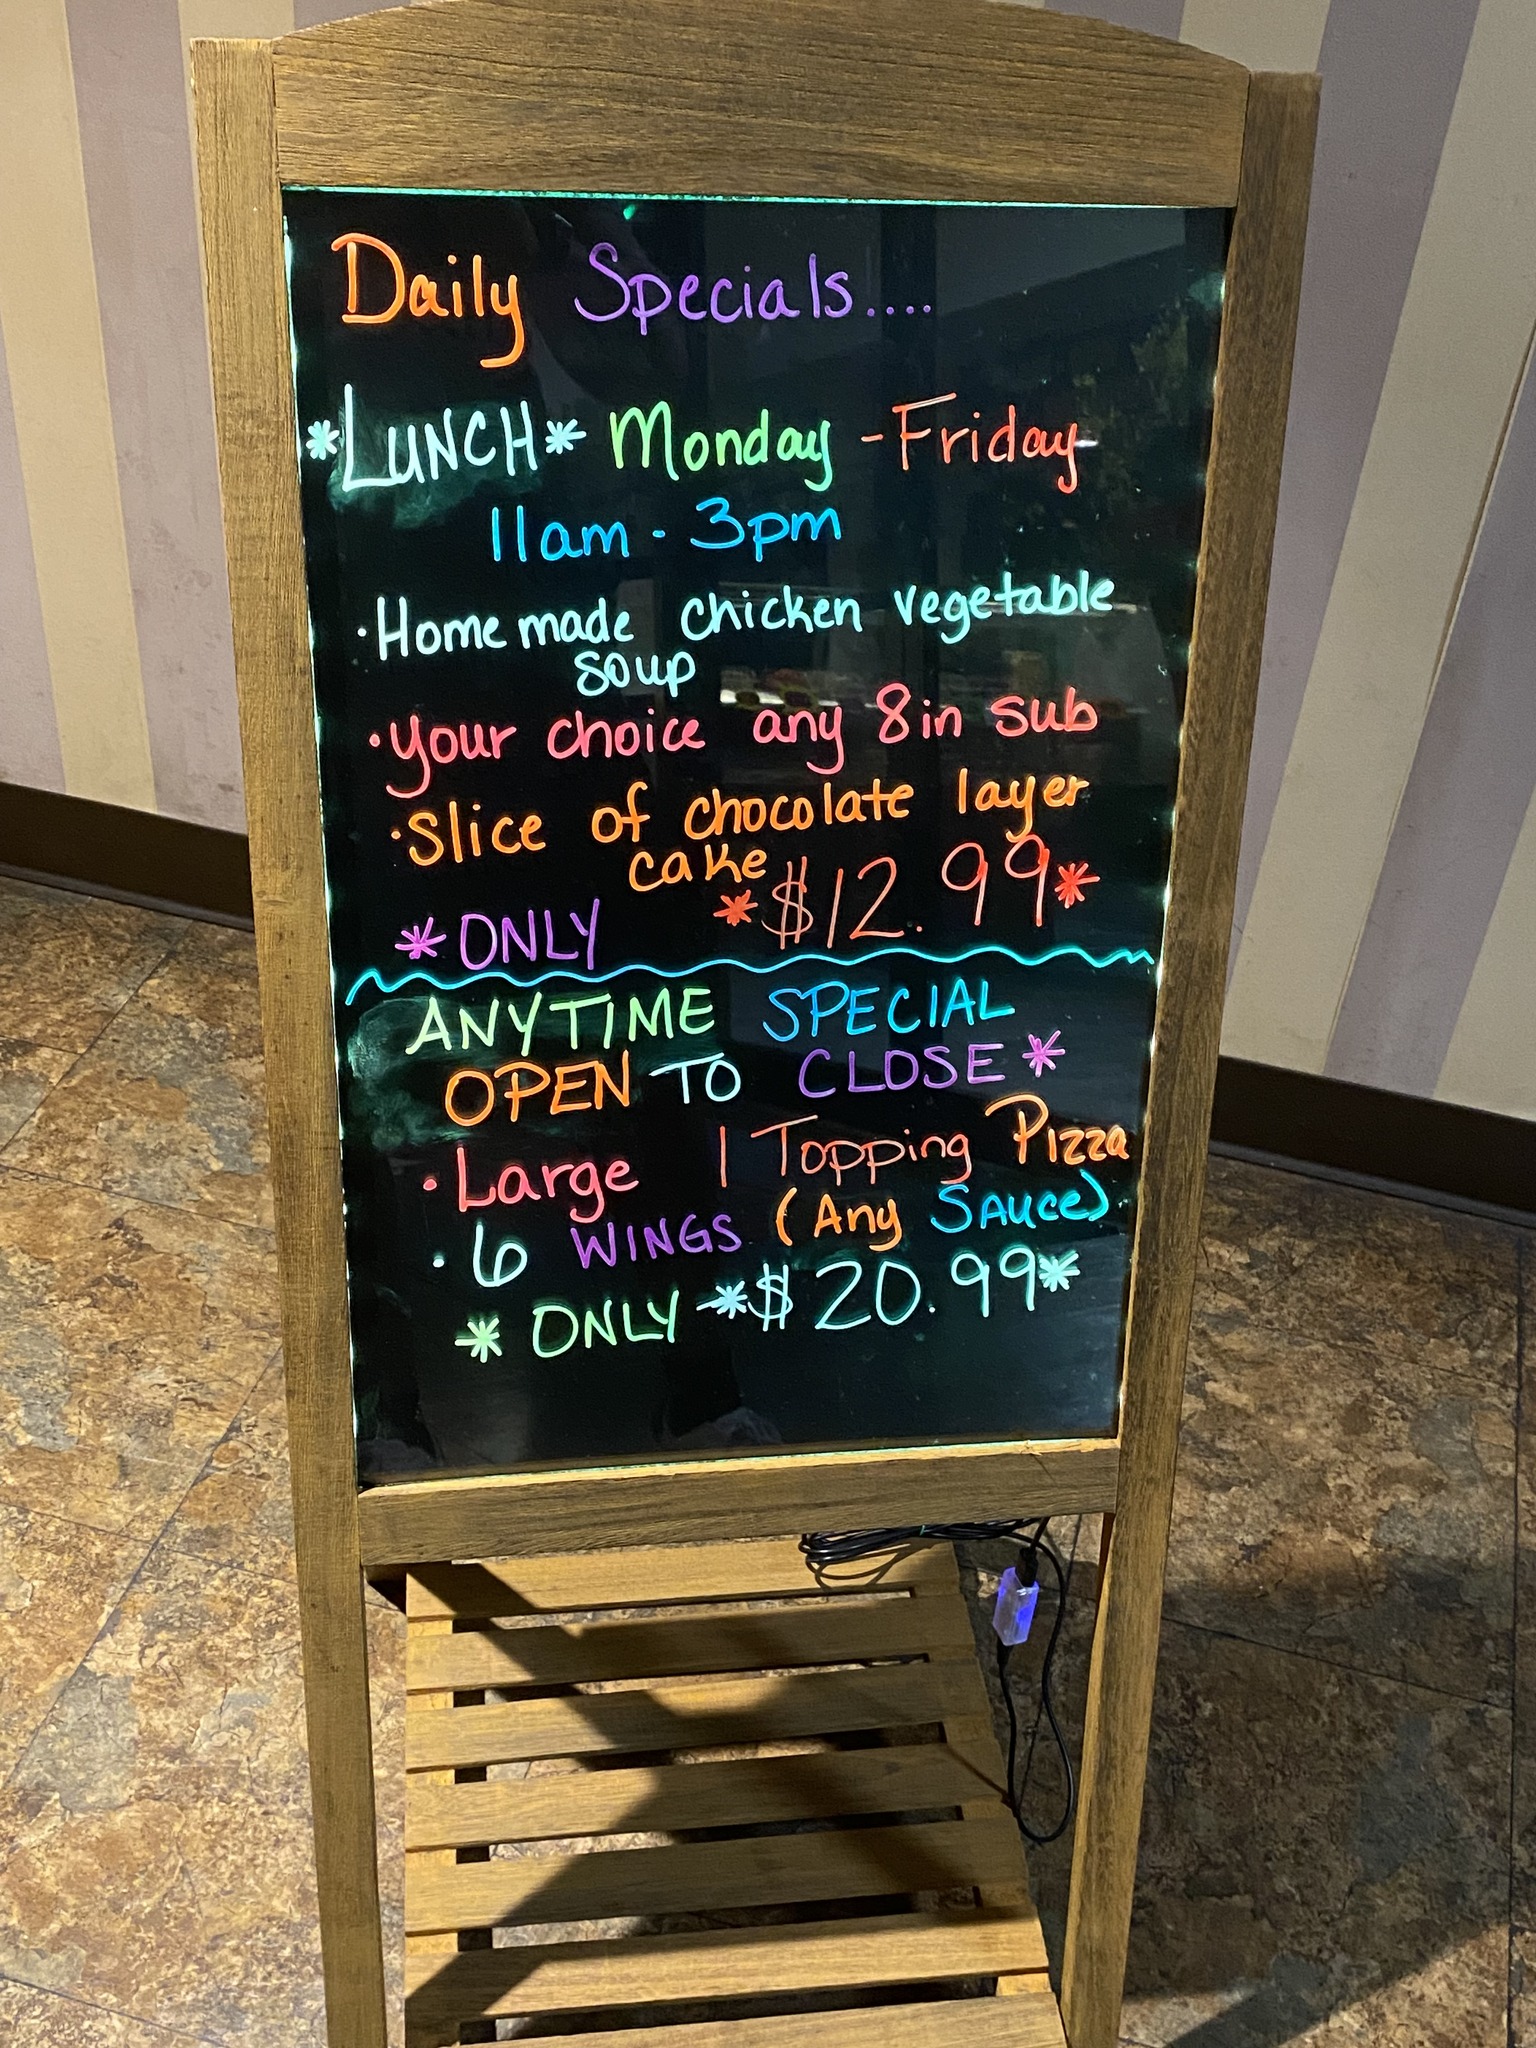 Daily Specials....
*LUNCH* Monday - Friday
11am - 3pm
· Homemade chicken vegetable
soup
· Your choice any 8in sub
· Slice of chocolate layer
cake
*ONLY *$12.99*
ANYTIME SPECIAL
OPEN TO CLOSE *
· Large 1 Topping Pizza
· 6 WINGS (Any Sauce)
* ONLY *$20.99*